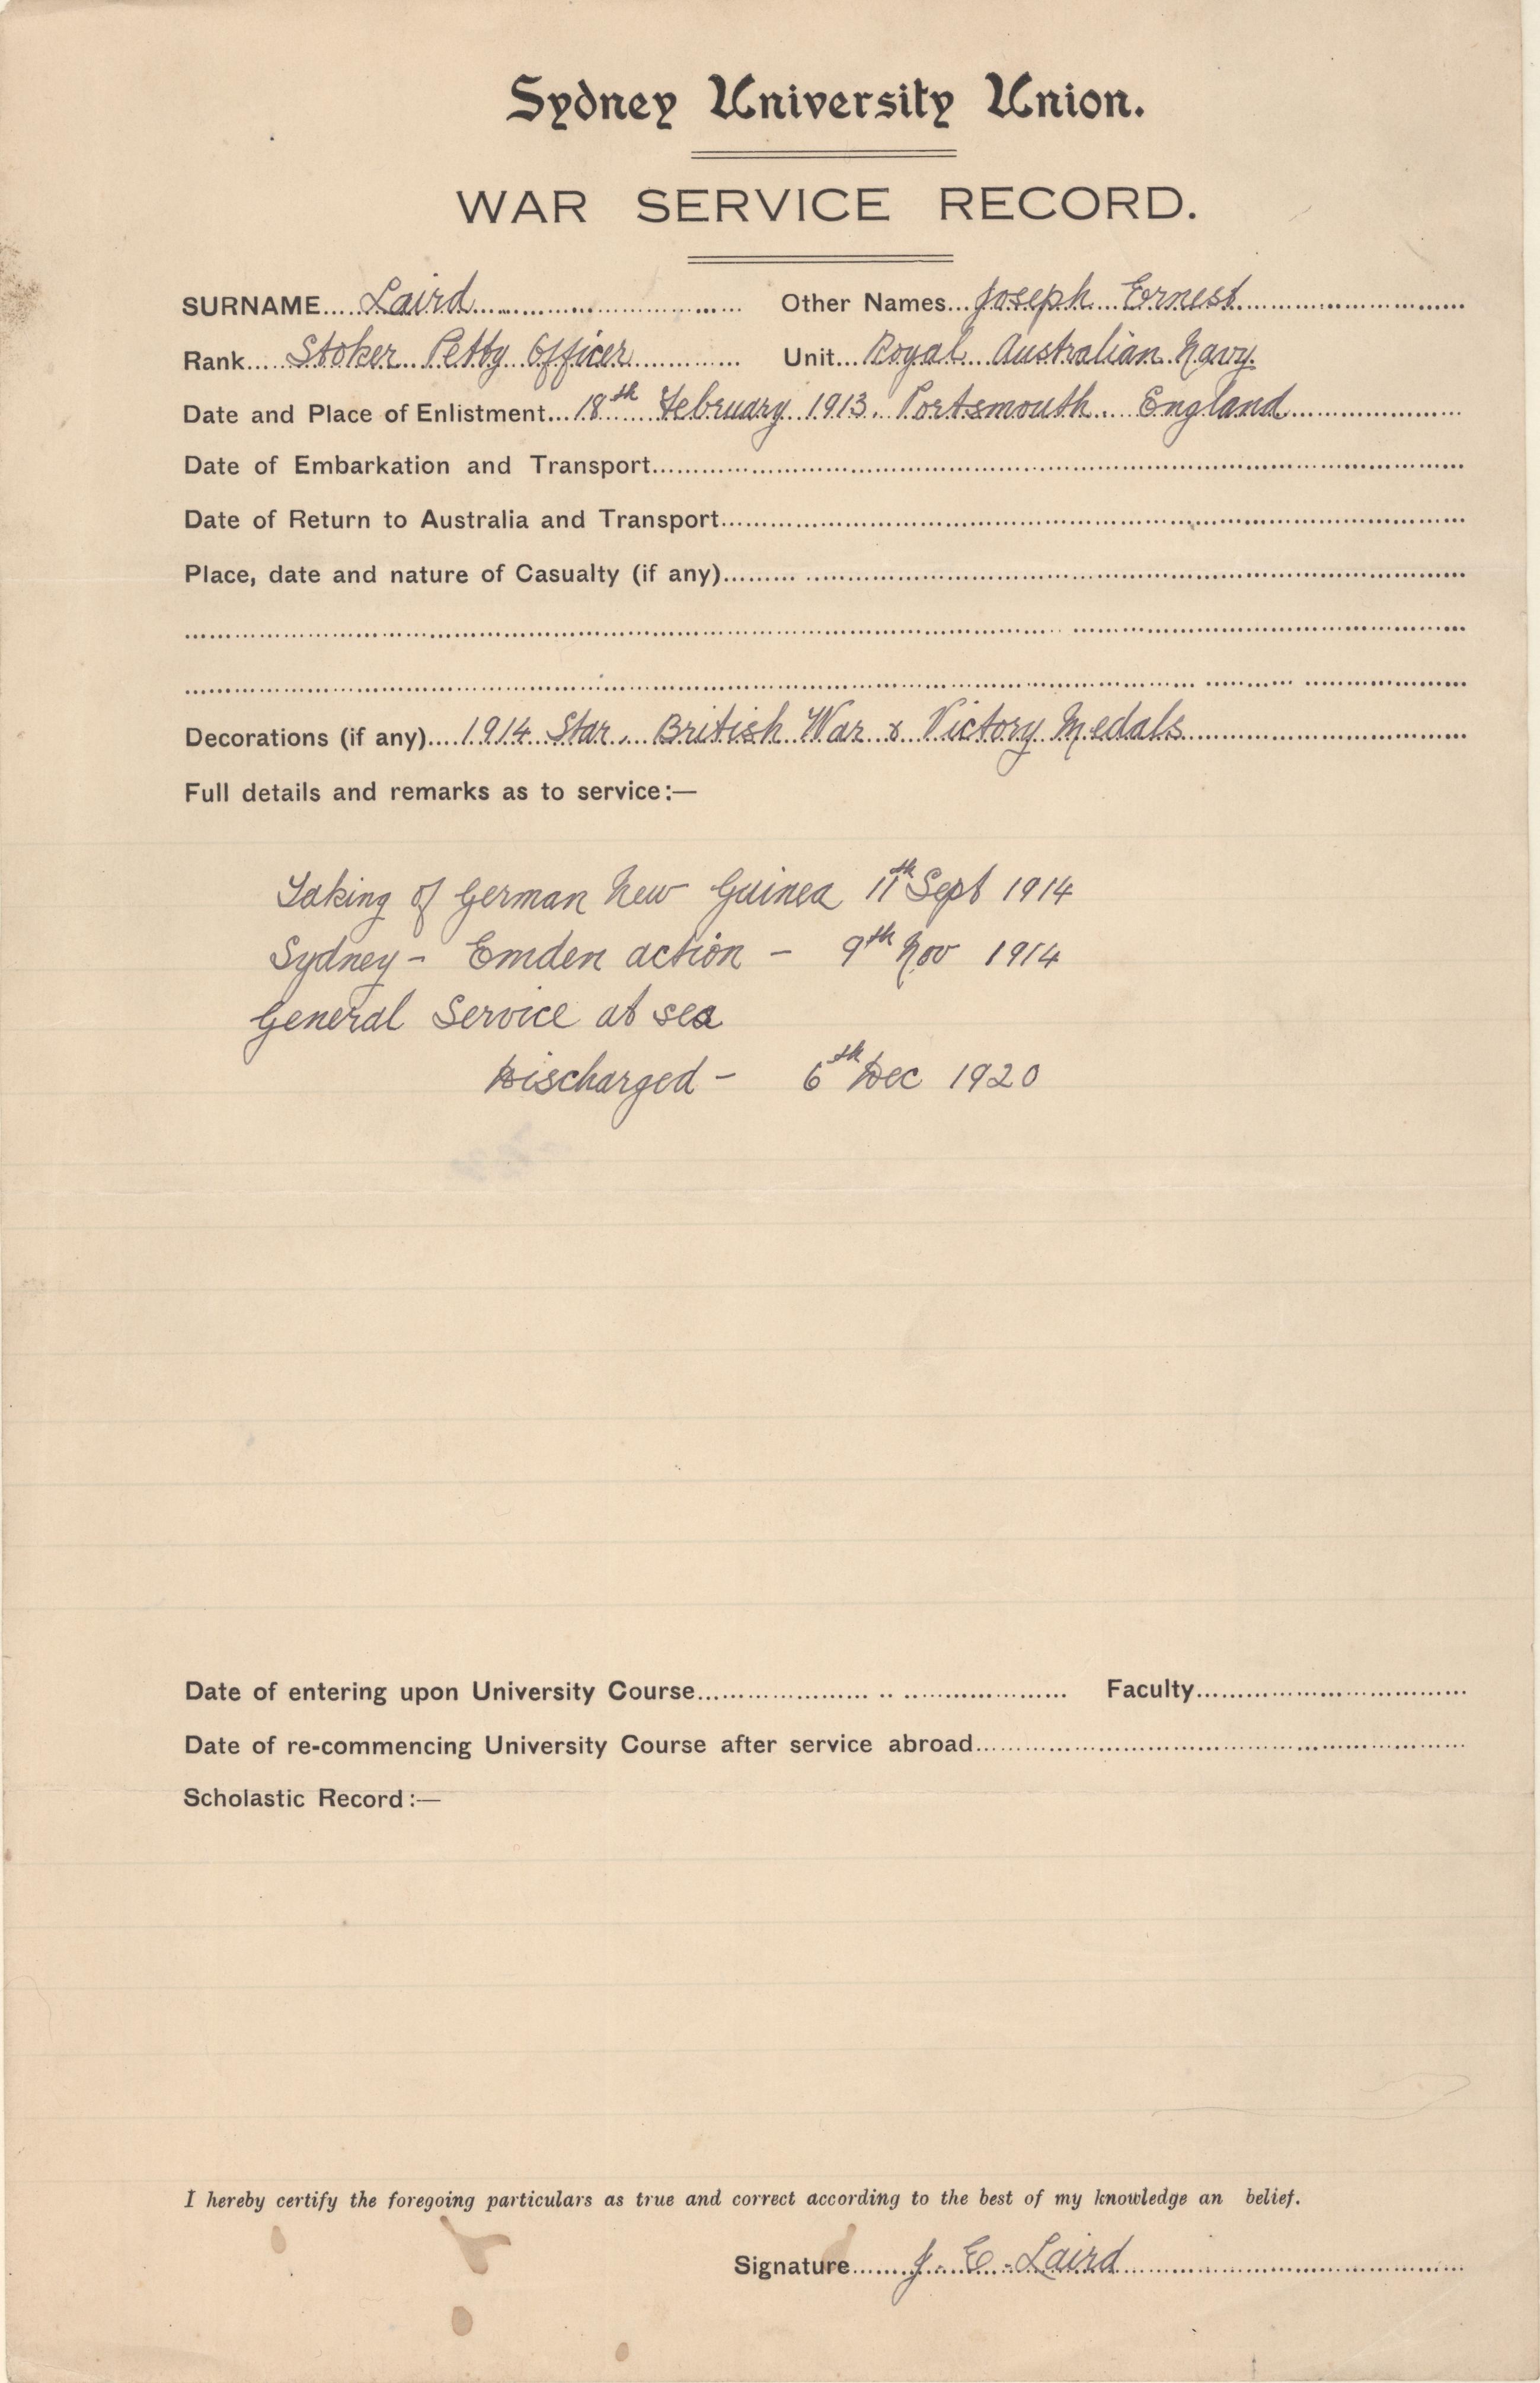 Sydney University Union.
WAR SERVICE RECORD.
SURNAME....Laird.................... Other Names...Joseph Ernest....................
Rank.....Stoker Petty Officer............ Unit...Royal Australian Navy.
Date and Place of Enlistment...18th February 1913. Portsmouth. England....................
Date of Embarkation and Transport........................................
Date of Return to Australia and Transport........................................
Place, date and nature of Casualty (if any)........................................
........................................
........................................
Decorations (if any)....1914 Star, British War & Victory Medals....................
Full details and remarks as to service:—
Taking of German New Guinea 11th Sept 1914
Sydney - Emden action - 9th Nov 1914
General Service at sea
Discharged - 6th Dec 1920
Date of entering upon University Course.............................. Faculty..............................
Date of re-commencing University Course after service abroad........................................
Scholastic Record:—
I hereby certify the foregoing particulars as true and correct according to the best of my knowledge an belief.
Signature.......J. E. Laird....................